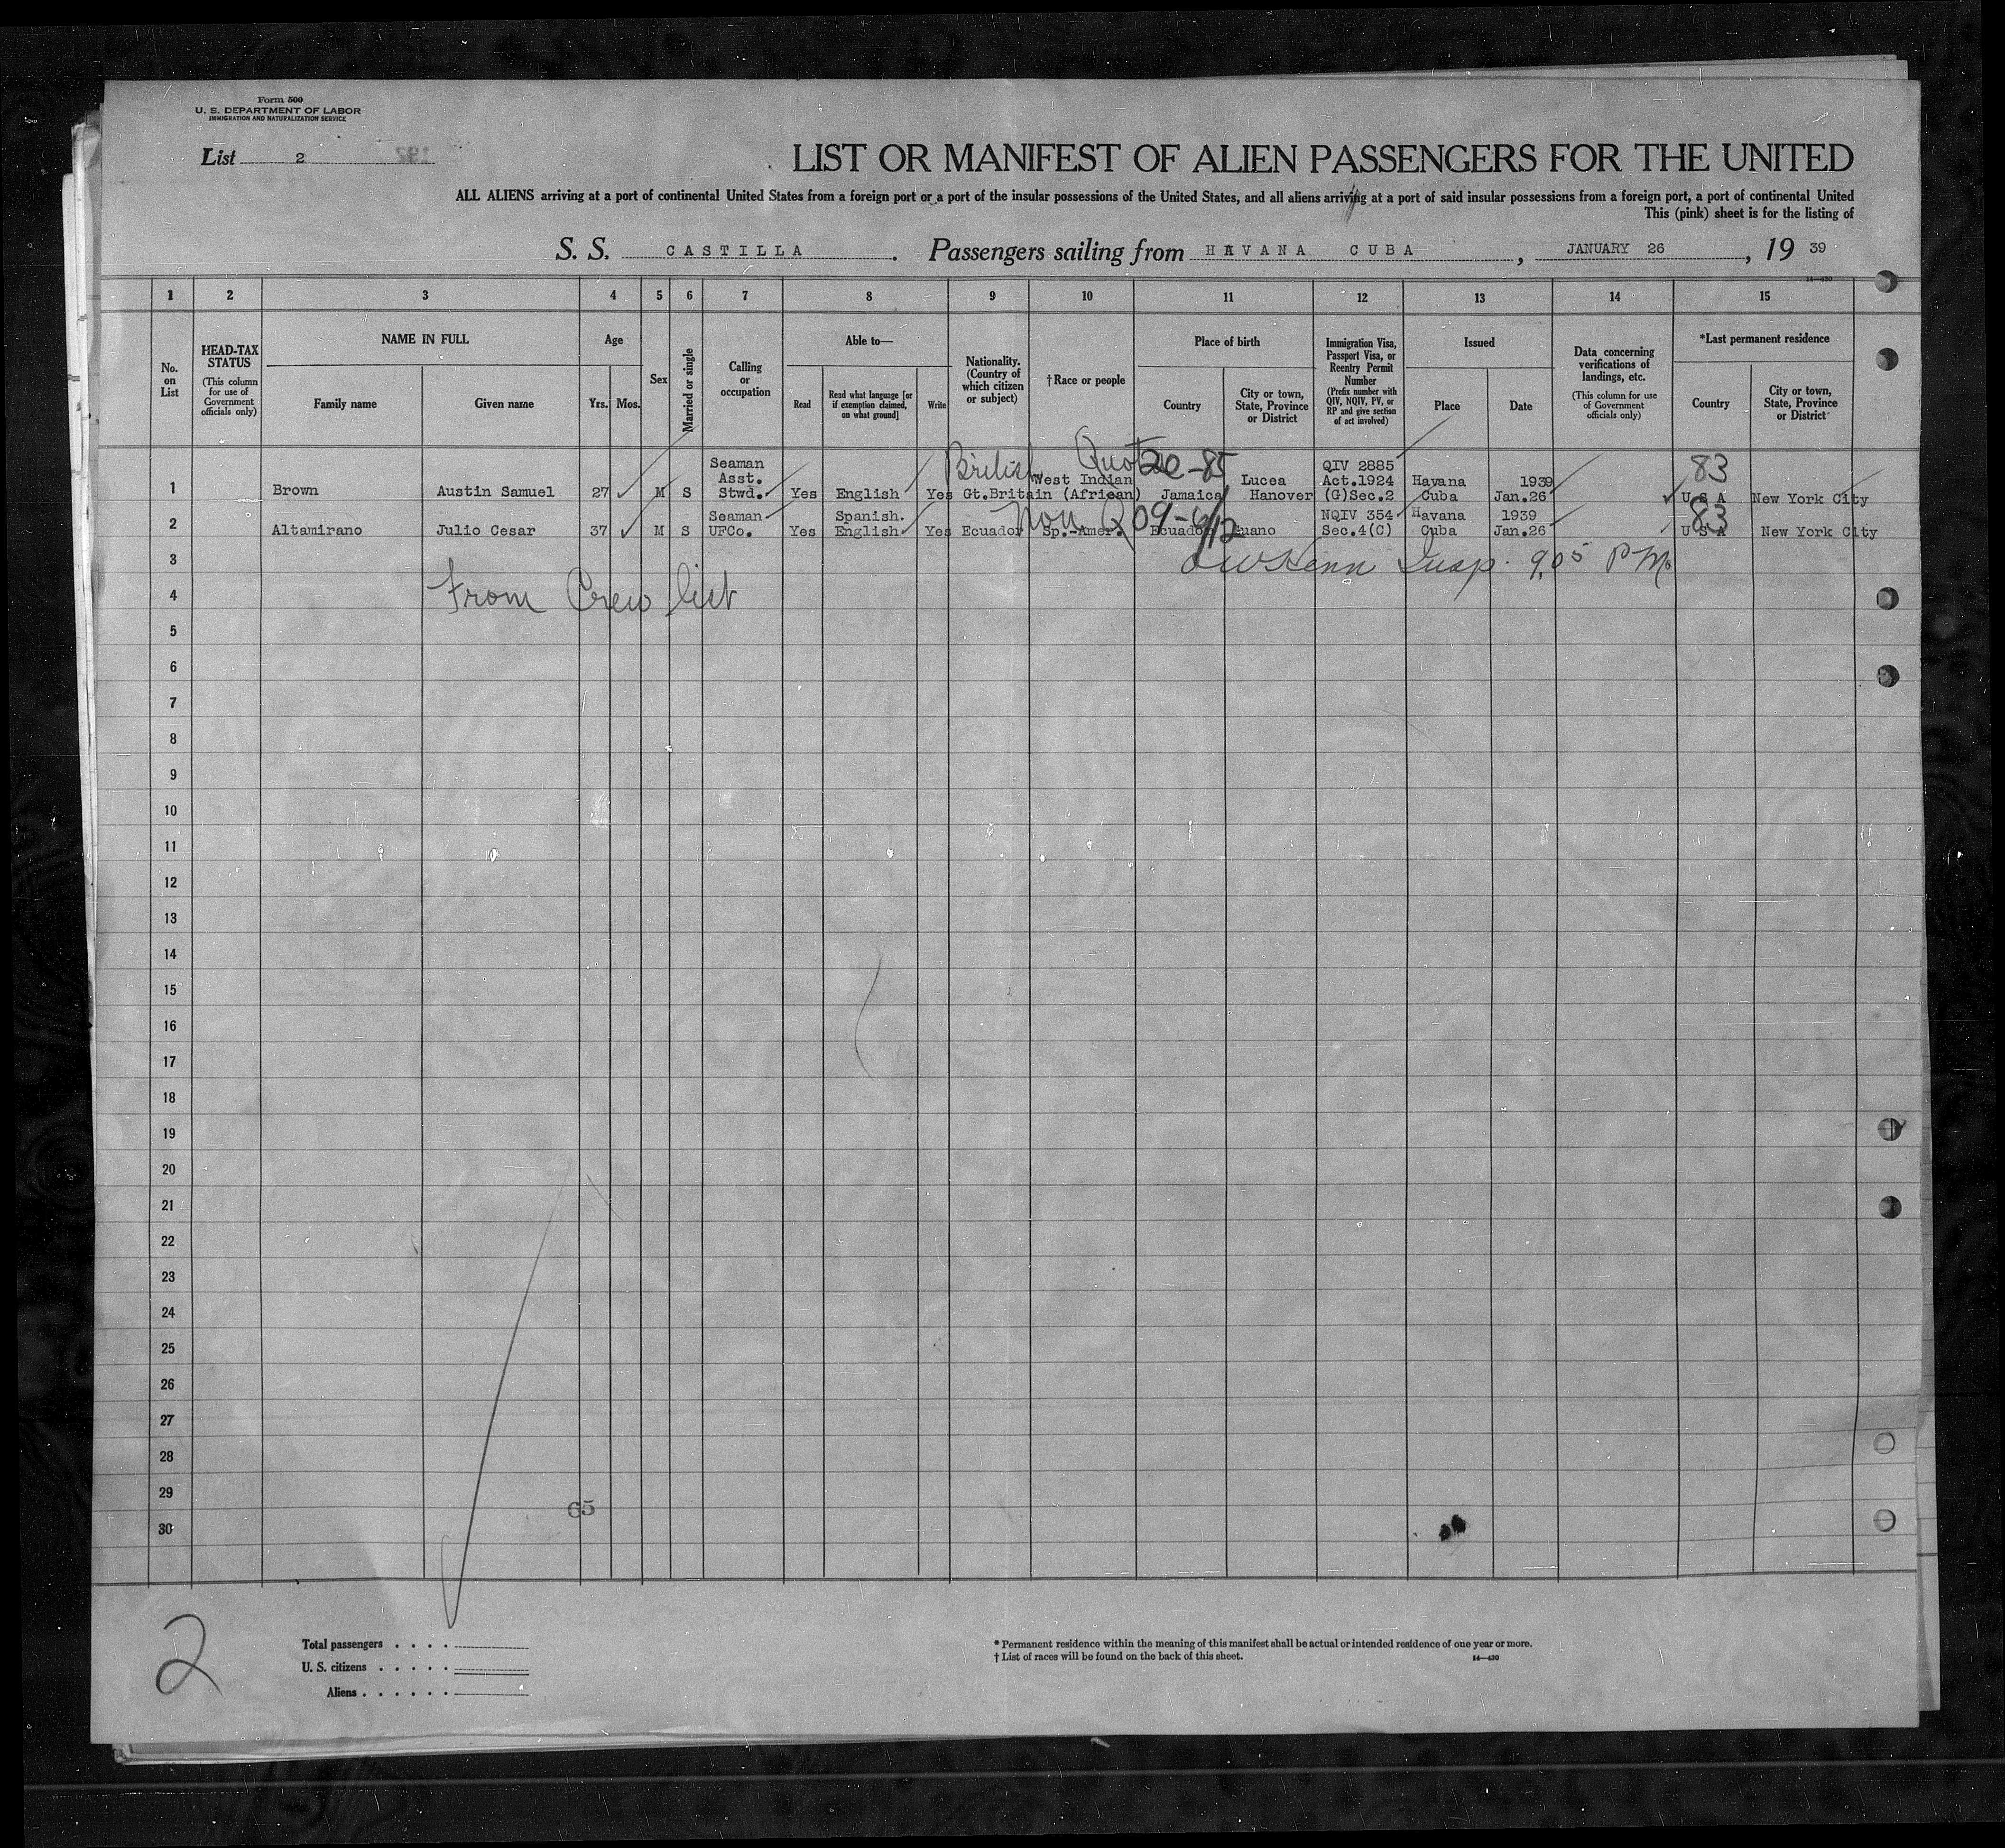 Form 500
U. S. DEPARTMENT OF LABOR
IMMIGRATION AND NATURALIZATION SERVICE
List 2
LIST OR MANIFEST OF ALIEN PASSENGERS FOR THE UNITED
ALL ALIENS arriving at a port of continental United States from a foreign port or a port of the insular possessions of the United States, and all aliens arriving at a port of said insular possessions from a foreign port, a port of continental United
This (pink) sheet is for the listing of
S. S. CASTILLA. Passengers sailing from HAVANA CUBA, JANUARY 26, 19 39
1 2 3 4 5 6 7 8 9 10 11 12 13 14 15
No. on List
HEAD-TAX STATUS
(This column for use of Government officials only)
NAME IN FULL
Family name
Given name
Age
Yrs. Mos.
Sex
Married or single
Calling or occupation
Able to—
Read
Read what language [or if exemption claimed, on what ground]
Write
Nationality. (Country of which citizen or subject)
†Race or people
Place of birth
Country
City or town, State, Province or District
Immigration Visa, Passport Visa, or Reentry Permit Number
(Prefix number with QIV, NQIV, PV, or RP and give section of act involved)
Issued
Place
Date
Data concerning verifications of landings, etc.
(This column for use of Government officials only)
*Last permanent residence
Country
City or town, State, Province or District
British Quota 20-85 83
1 Brown Austin Samuel 27 M S Seaman Asst. Stwd. Yes English Yes Gt.Britain West Indian (African) Jamaica Lucea Hanover QIV 2885 Act.1924 (G)Sec.2 Havana Cuba 1939 Jan.26 U S A New York City
Non Q 09-6/12 83
2 Altamirano Julio Cesar 37 M S Seaman UFCo. Yes Spanish. English Yes Ecuador Sp.-Amer. Ecuador NQIV 354 Sec.4(C) Havana Cuba 1939 Jan.26 U S A New York City
3 Insp. 9.05 P.M.
4 From Crew list
5
6
7
8
9
10
11
12
13
14
15
16
17
18
19
20
21
22
23
24
25
26
27
28
29
65
30
2
Total passengers
U. S. citizens
Aliens
* Permanent residence within the meaning of this manifest shall be actual or intended residence of one year or more.
† List of races will be found on the back of this sheet.
14—430